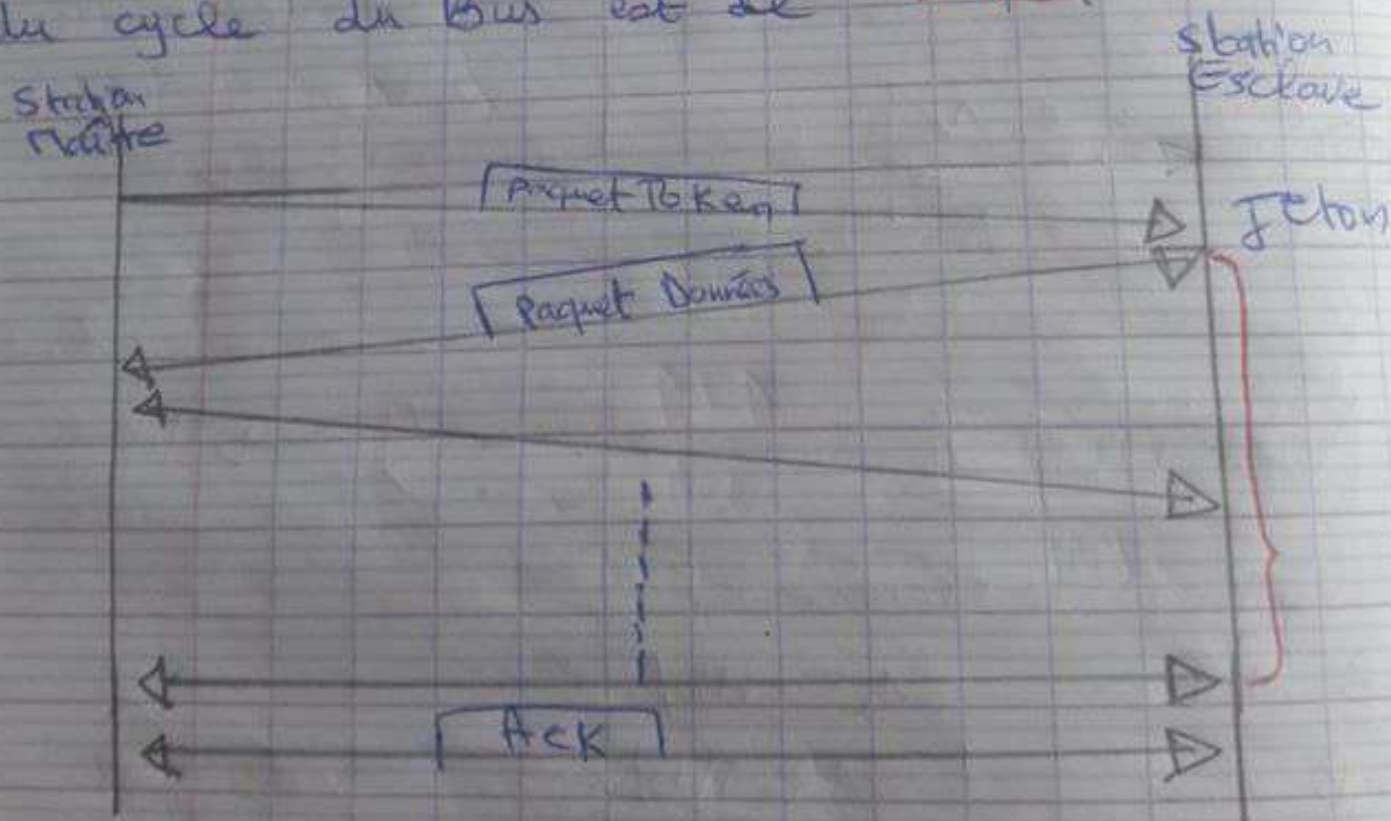 du cycle du Bus est de
Station
Esclave
Station
Maître
Paquet Token
Jeton
Paquet Données
Ack